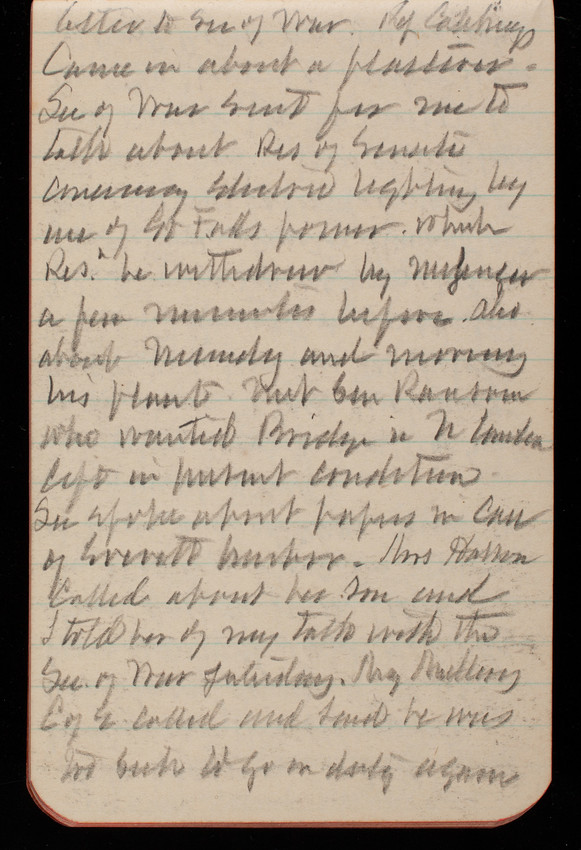 letter to Sec of War. Rep Catchings
Came in about a
Sec of War sent for me to
talk about Res of Senate
concerning Electric lighting by
use of Gt Falls power. which
Res.n he withdrew by messenger
a few minutes before. Also
about and moving
his plants. Met Gen Ransom
who wanted Bridge in N London
left in present condition.
Sec spoke about papers in Case
of Everett harbor. Mrs
Called about her Son and
I told her of my talk with the
Sec of War Saturday. Maj
C of E called and said he was
too sick to go on duty again